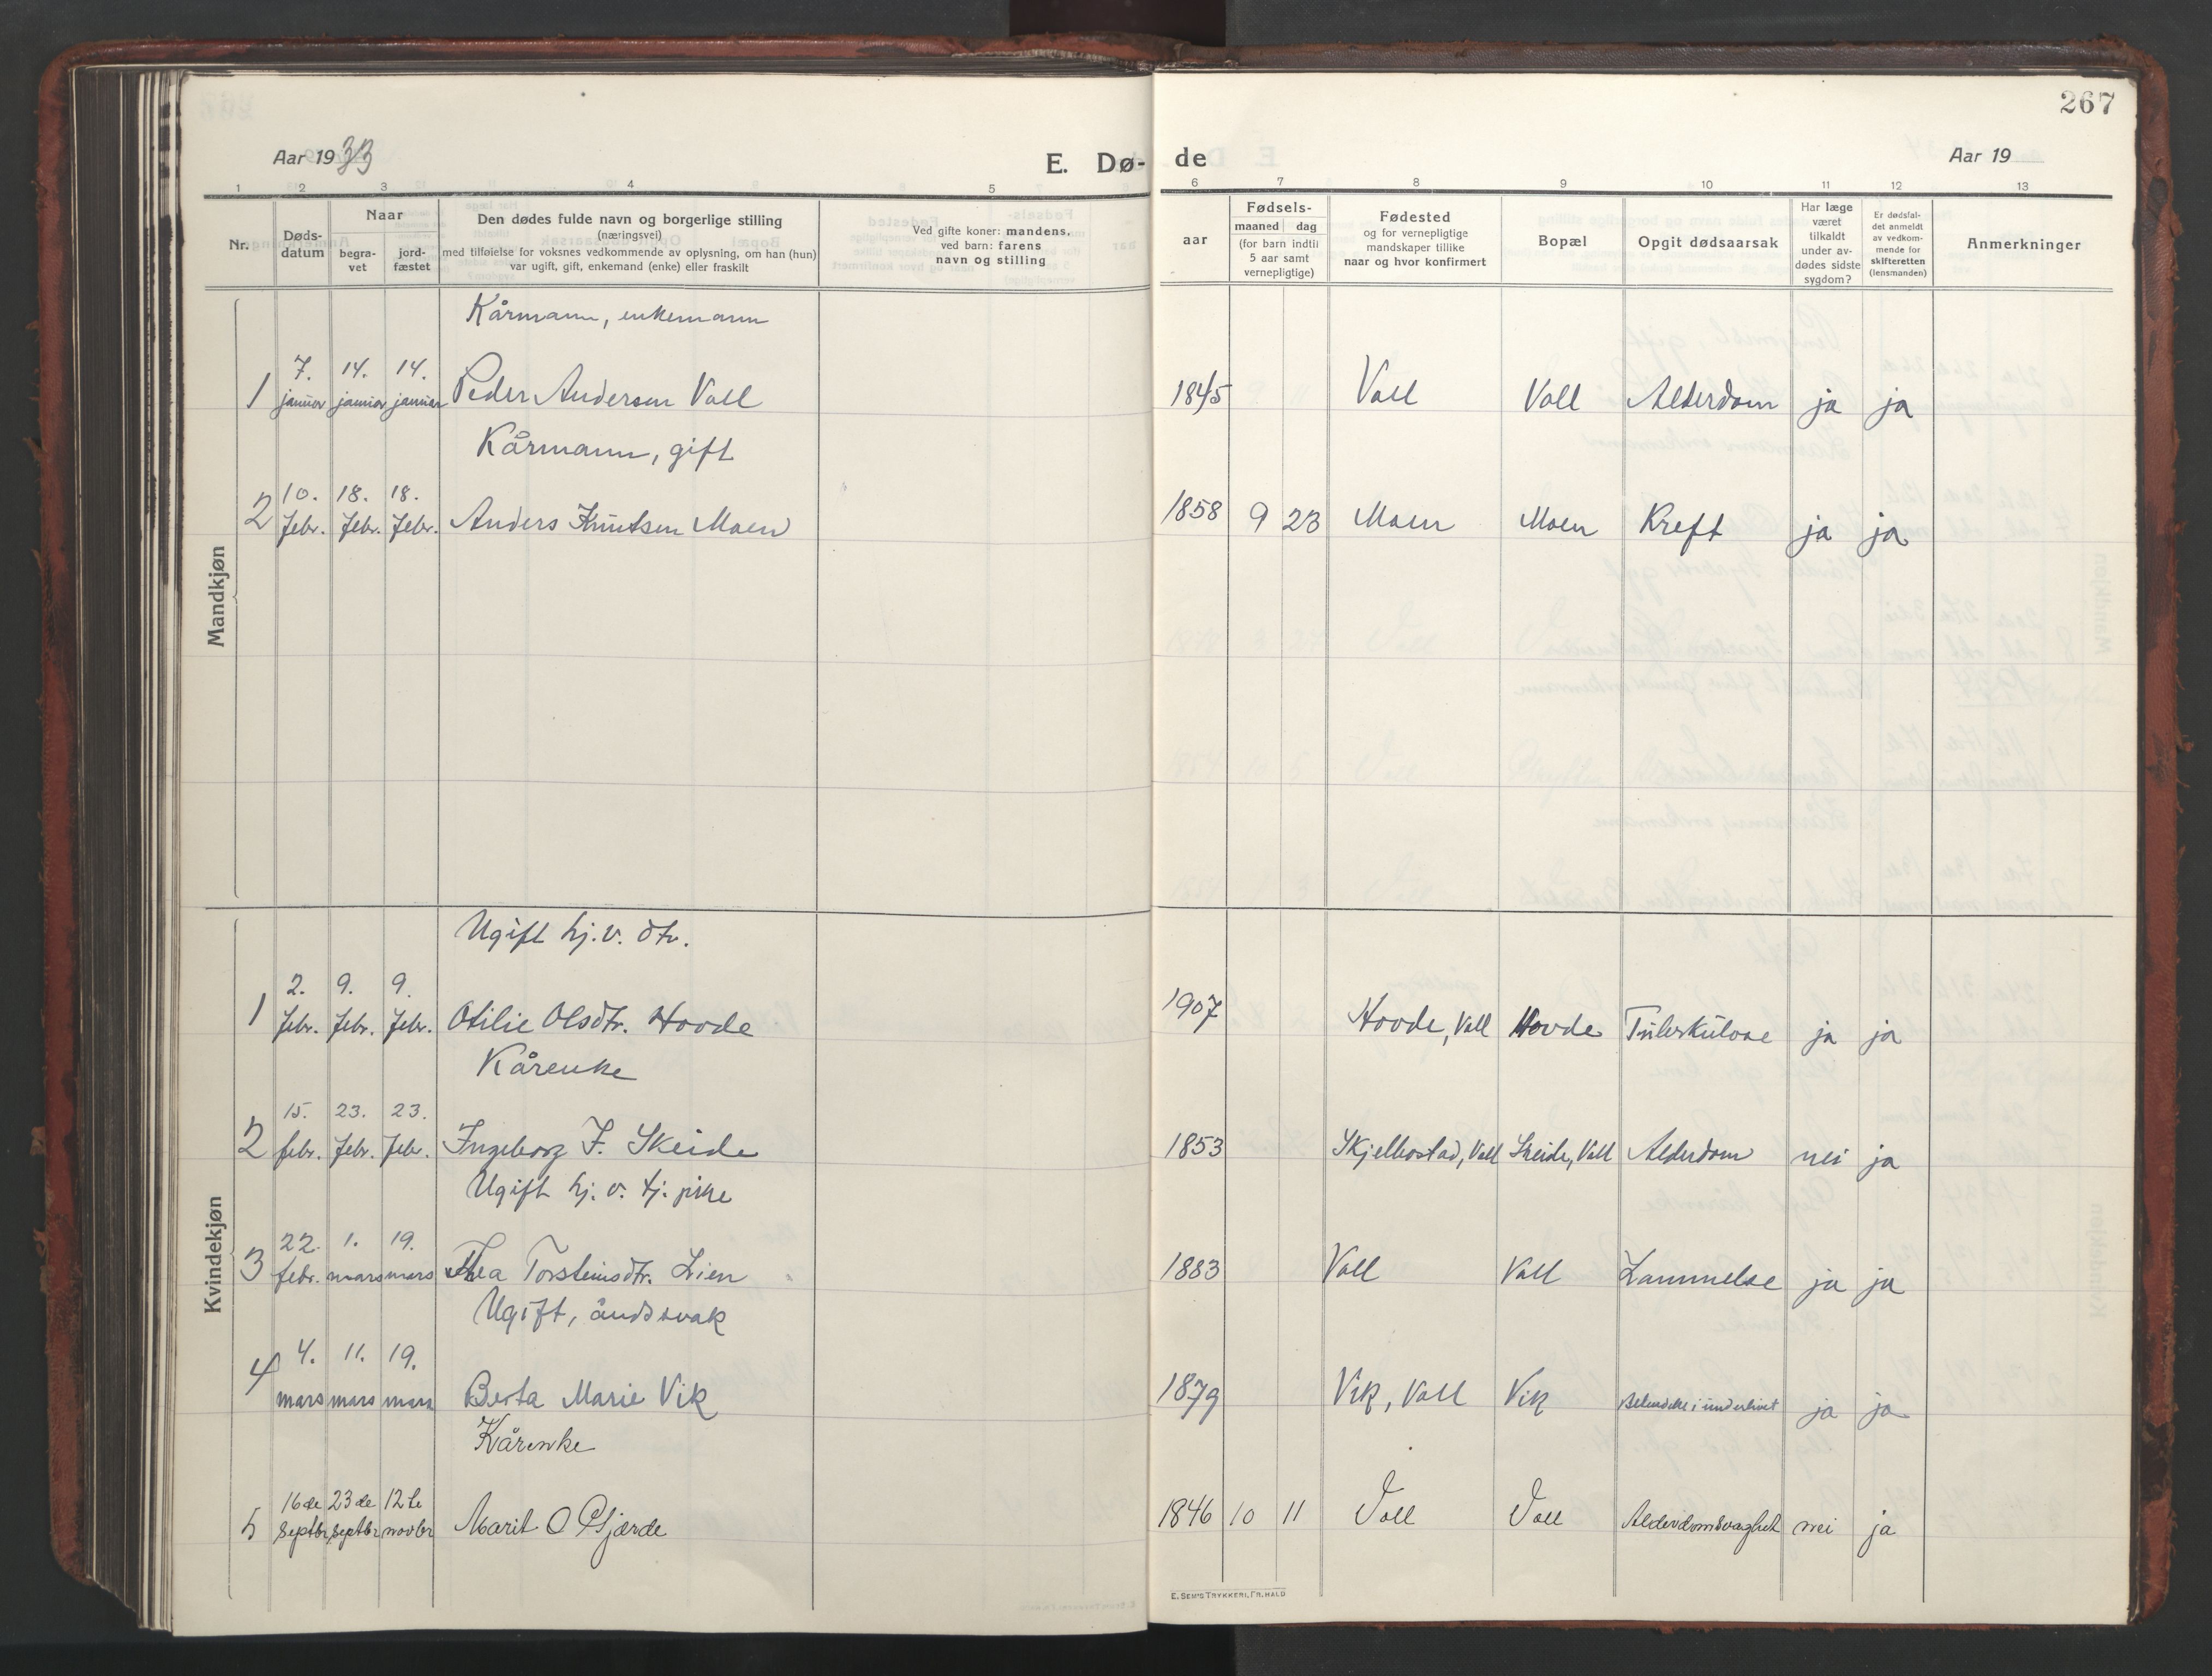 267
Aar 1933
E. Dø-
de
Aar 19
1 2 3 4 5 6 7 8 9 10 11 12 13
Nr.
Døds-
datum
Naar
begra-
vet
jord-
fæstet
Den dødes fulde navn og borgerlige stilling
(næringsvei)
med tilføielse for voksnes vedkommende av oplysning, om han (hun)
var ugift, gift, enkemand (enke) eller fraskilt
Ved gifte koner: mandens,
ved barn: farens
navn og stilling
aar
Fødsels-
maaned dag
(for barn indtil
5 aar samt
vernepligtige)
Fødested
og for vernepligtige
mandskaper tillike
naar og hvor konfirmert
Bopæl
Opgit dødsaarsak
Har læge
været
tilkaldt
under av-
dødes sidste
sygdom?
Er dødsfal-
det anmeldt
av vedkom-
mende for
skifteretten
(lensmanden)
Anmerkninger
Mandkjøn
Kårmann, enkemann
7. 14. 14.
1 januar januar januar Peder Andersen Voll 1845 Voll Voll Alderdom ja ja
Kårmann, gift
10. 18. 18.
2 febr. febr. febr. Anders Knutsen Moen 1858 9 23 Moen Moen Kreft ja ja
Kvindekjøn
Ugift hj.v. dtr.
2. 9. 9.
1 febr. febr. febr. Otilie Olsdtr. Hovde 1907 Hovde, Voll Hovde Tuberkulose ja ja
Kårenke
15. 23. 23.
2 febr. febr. febr. Ingeborg F. Skeide 1853 Skjelbostad, Voll Skeide, Voll Alderdom nei ja
Ugift hj. v. tj. pike
22. 1. 19.
3 febr. mars mars Thea Torsteinsdtr. Lien 1883 Voll Voll Lammelse ja ja
Ugift, åndssvak
4. 11. 19.
4 mars mars mars Berta Marie Vik 1879 Vik, Voll Vik Betendelse i underlivet ja ja
Kårenke
16de 23de 12te
5 septbr septbr novbr Marit O Gjærde 1846 10 11 Voll Voll Alderdomsvaghet nei ja
E. SEM'S TRYKKERI, FR. HALD